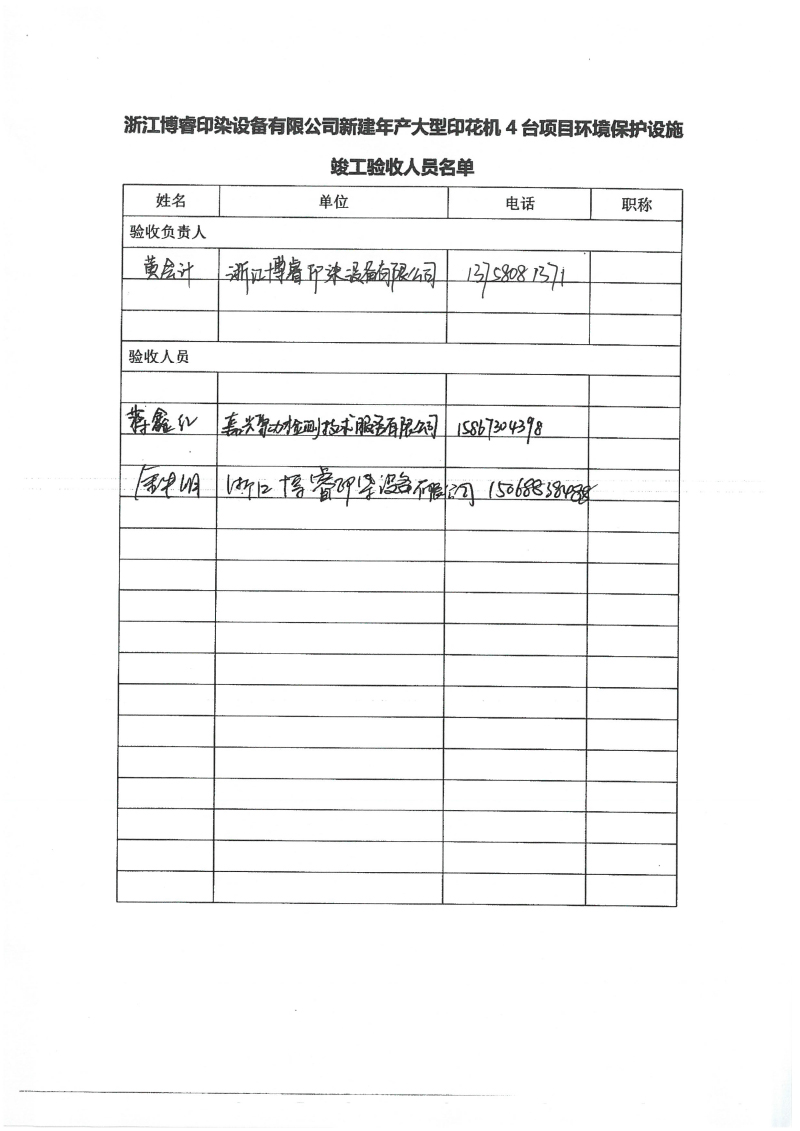 浙江博睿印染设备有限公司新建年产大型印花机 4 台项目环境保护设施
竣工验收人员名单
姓名 单位 电话 职称
验收负责人
黄会计 浙江博睿印染设备有限公司 13758081371
验收人员
蒋鑫红 嘉兴聚力检测技术服务有限公司 15867304398
浙江博睿印染设备有限公司